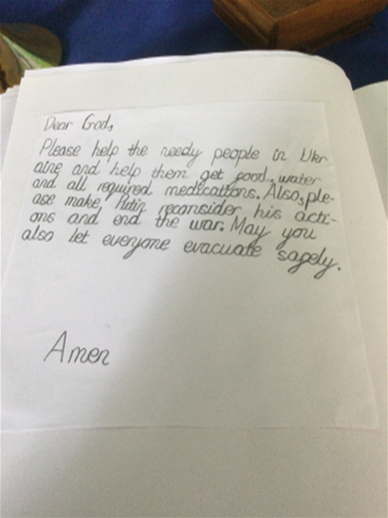 Dear God,
Please help the needy people in Ukr
aine and help them get food, water
and all required medications. Also, ple-
ase make Putin reconsider his acti-
ons and end the war. May you
also let everyone evacuate safely.
Amen